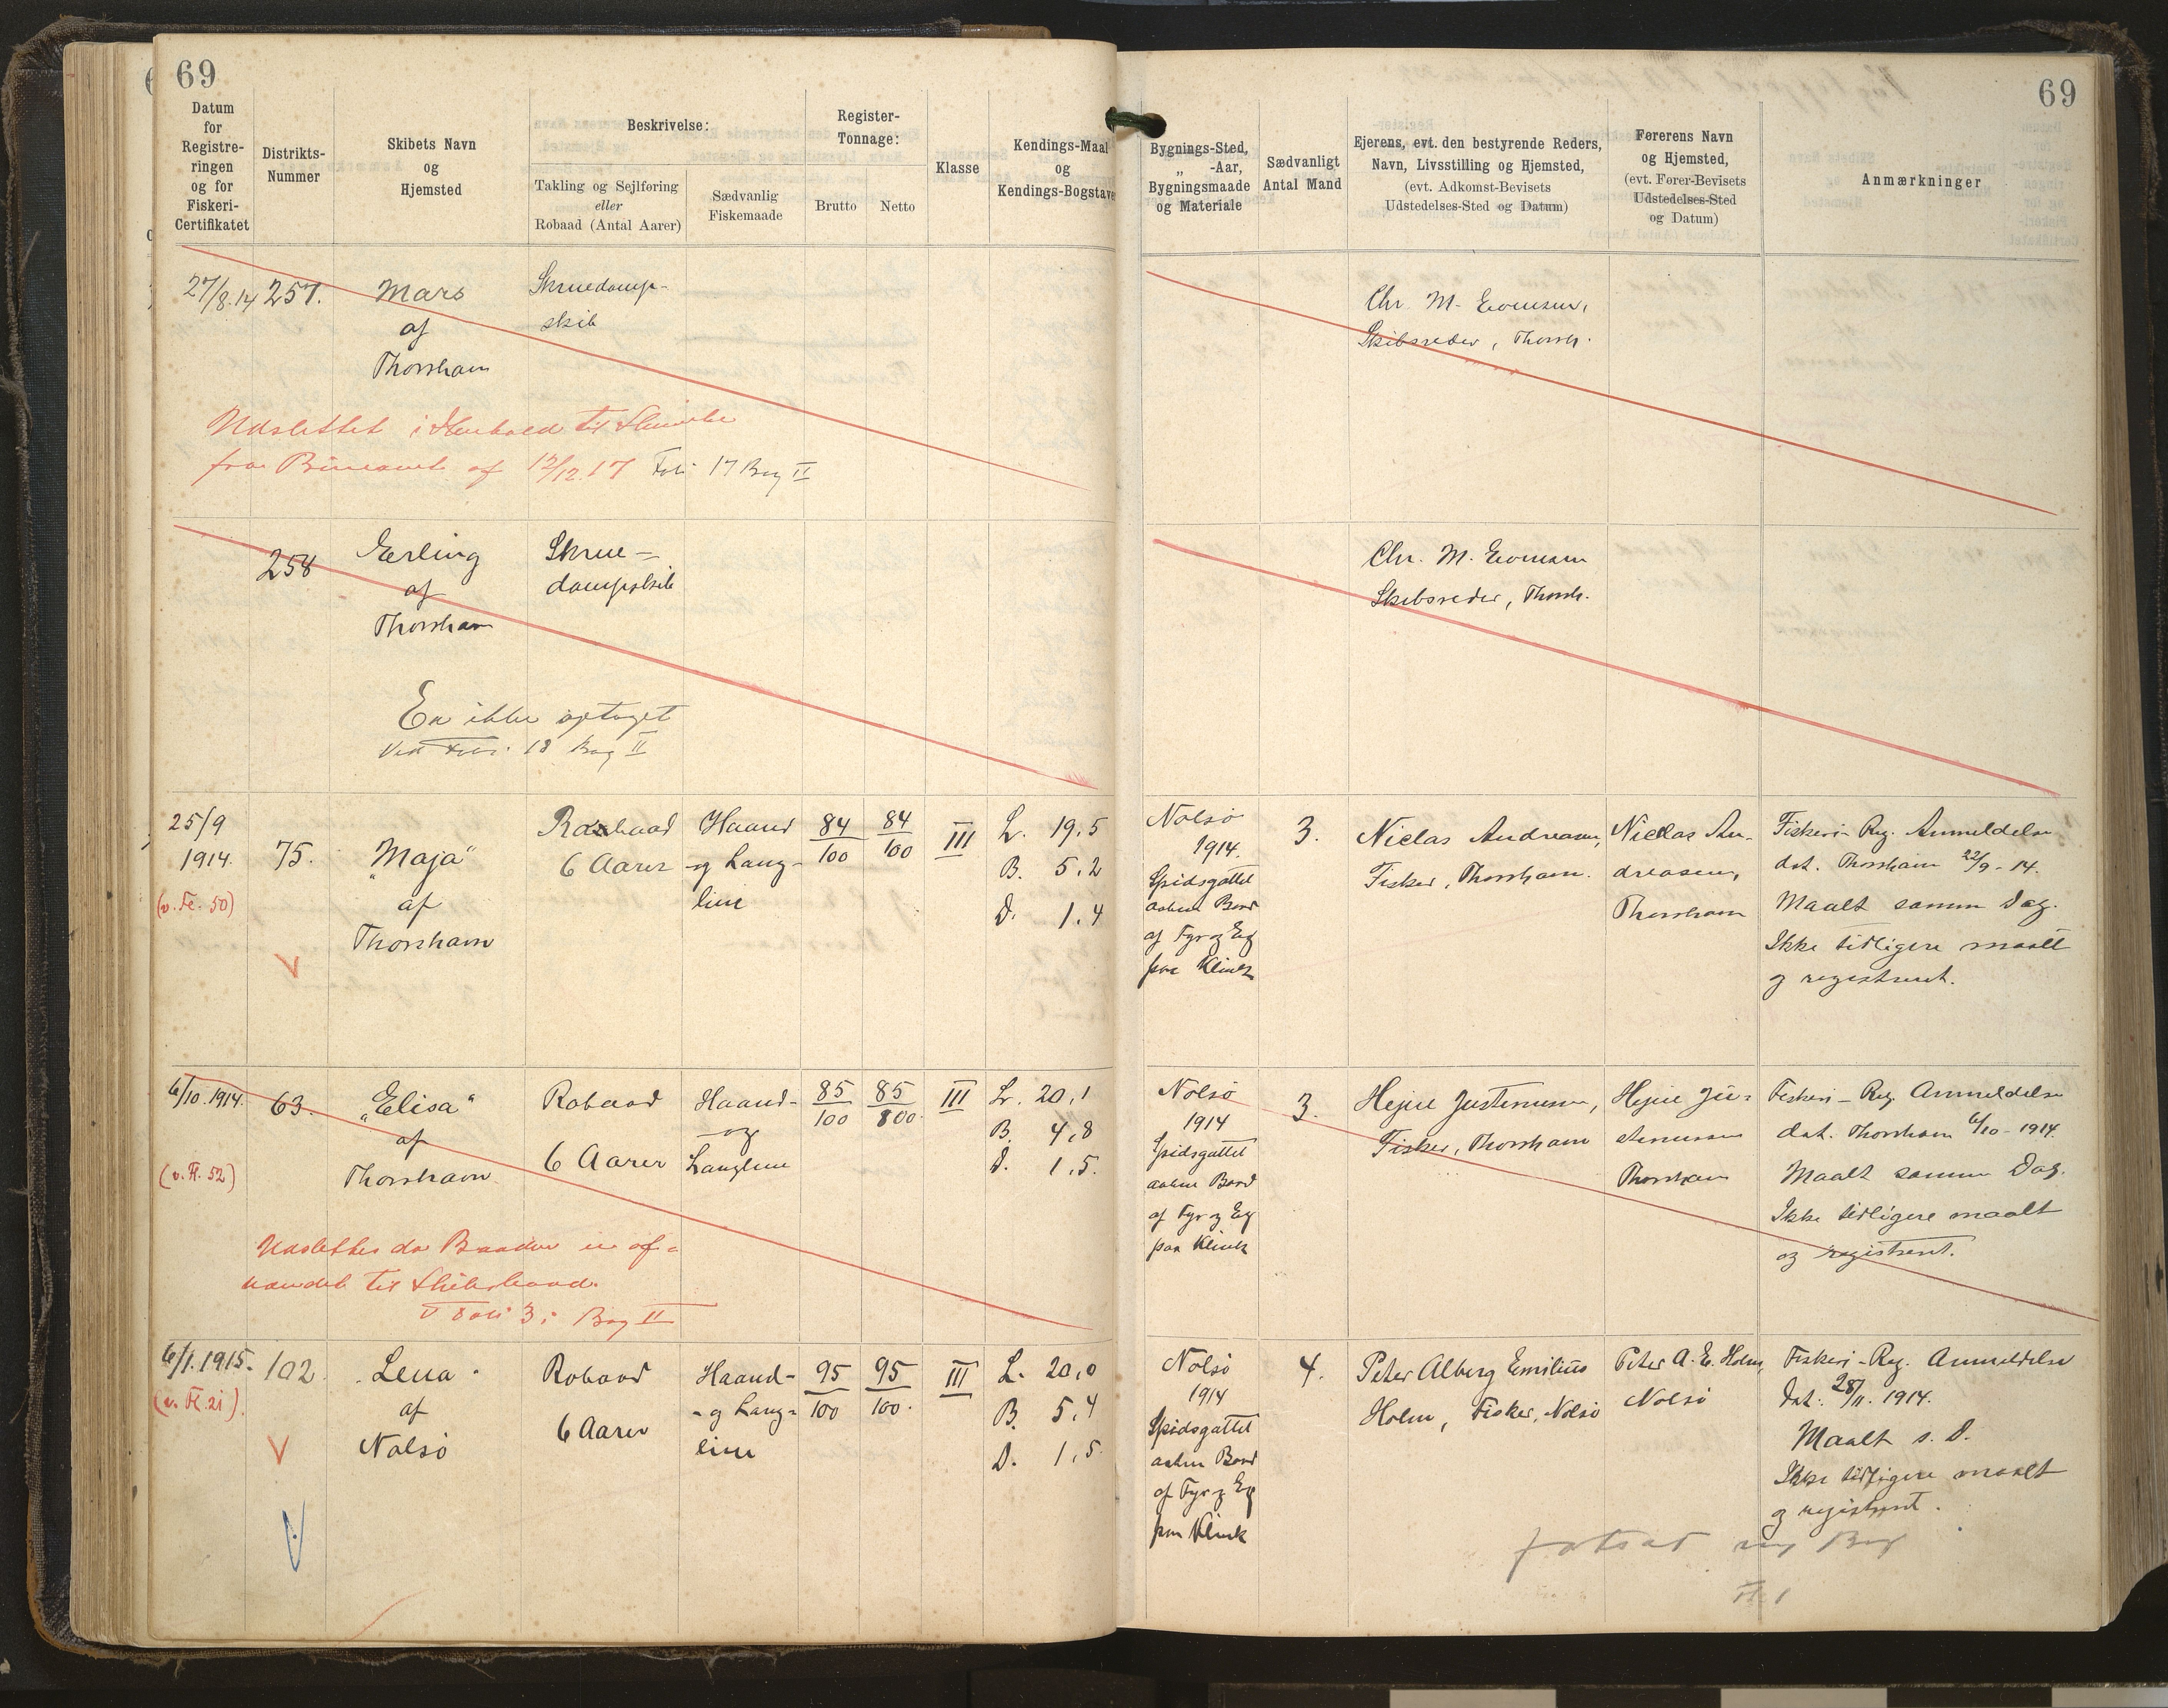 69
Datum
for
Registre-
ringen
og for
Fiskeri-
Certifikatet
Distrikts-
Nummer
Skibets Navn
og
Hjemsted
Beskrivelse:
Takling og Sejlføring
eller
Robaad (Antal Aarer)
Sædvanlig
Fiskemaade
Register-
Tonnage:
Brutto
Netto
Klasse
Kendings-Maal
og
Kendings-Bogstaver
27/8.14
257.
Mars
af
Thorshavn
Skruedamp-
skib
Udslettet i Henhold til Skrivelse
fra af 12/12.17 Foli 17 Bog II
258
Erling
af
Thorshavn
Skrue-
dampskib
Er ikke optaget
Foli 18 Bog II
25/9
1914.
(v. Fl. 50)
75.
"Maja"
af
Thorshavn
V
Robaad
6 Aarer
Haand
og Lang-
line
84
100
84
100
III
L. 19,5
B. 5,2
D. 1,4
6/10.1914.
(v. Fl. 52)
63.
"Elisa"
af
Thorshavn
Robaad
6 Aarer
Haand-
og
Langline
85
100
85
100
III
L. 20,1
B. 4,8
D. 1,5.
Udslettes da Baaden er of-
til
Foli 3 i Bog II
6/1.1915.
(v. Fl. 21)
102
Lena
af
Nolsö
V
Robaad
6 Aarer
Haand-
og Lang-
line
95
100
95
100.
III
L. 20,0
B. 5,4
D. 1,5
69
Bygnings-Sted,
„ -Aar,
Bygningsmaade
og Materiale
Sædvanligt
Antal Mand
Ejerens, evt. den bestyrende Reders,
Navn, Livsstilling og Hjemsted,
(evt. Adkomst-Bevisets
Udstedelses-Sted og Datum)
Førerens Navn
og Hjemsted,
(evt. Fører-Bevisets
Udstedelses-Sted
og Datum)
Anmærkninger
Chr. M.
Skibsreder, Thorsh.
Chr. M.
Skibsreder, Thorsh.
Nolsö
1914.
Spidsgattet
aaben Baad
af Fyr og Eg
paa Klink
3.
Niclas Andreasen,
Fisker, Thorshavn.
Niclas An-
dreasen,
Thorshavn
Fiskeri-Reg. Anmeldelse
dat. Thorshavn 22/9-14.
Maalt samme Dag.
Ikke tidligere maalt
og registreret.
Nolsö
1914
Spidsgattet
aaben Baad
af Fyr og Eg
paa Klink
3.
Hejne Justinussen,
Fisker, Thorshavn
Hejne Ju-
stinussen
Thorshavn
Fiskeri-Reg. Anmeldelse
dat. Thorshavn 6/10-1914.
Maalt samme Dag.
Ikke tidligere maalt
og registreret.
Nolsö
1914
Spidsgattet
aaben Baad
af Fyr og Eg
paa Klink
4.
Peter Alberg Emilius
Holm, Fisker, Nolsö
Peter A. E. Holm,
Nolsö
Fiskeri-Reg. Anmeldelse
dat. 28/11. 1914.
Maalt s. D.
Ikke tidligere maalt
og registreret.
ny Bog
Fl. 1